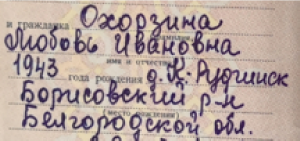 и гражданка Охорзина
фамилия,
Любовь Ивановна
имя и отчество
1943
года рождения д.
Борисовский р-н
(место рождения)
Белгородской обл.